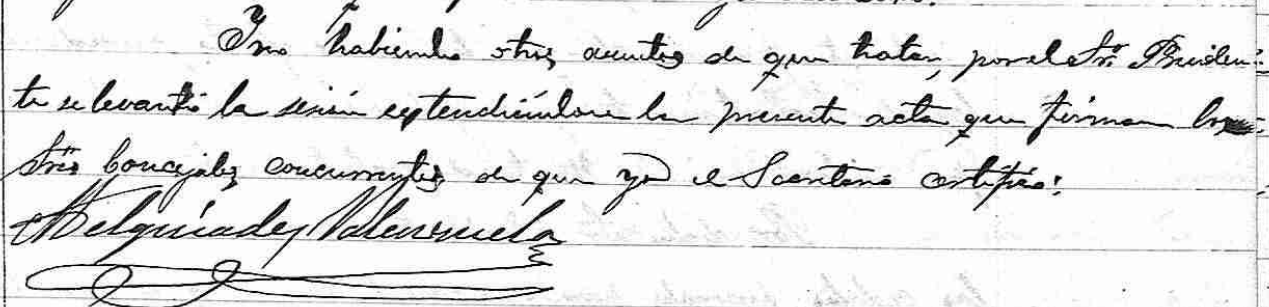 Y no habiendo otros asuntos de que tratar, por el Sr. Presiden-
te se levantó la sesión extendiéndose la presente acta que firman los
Sres Concejales concurrentes de que yo el Secretario certifico:
Melquíades Valenzuela